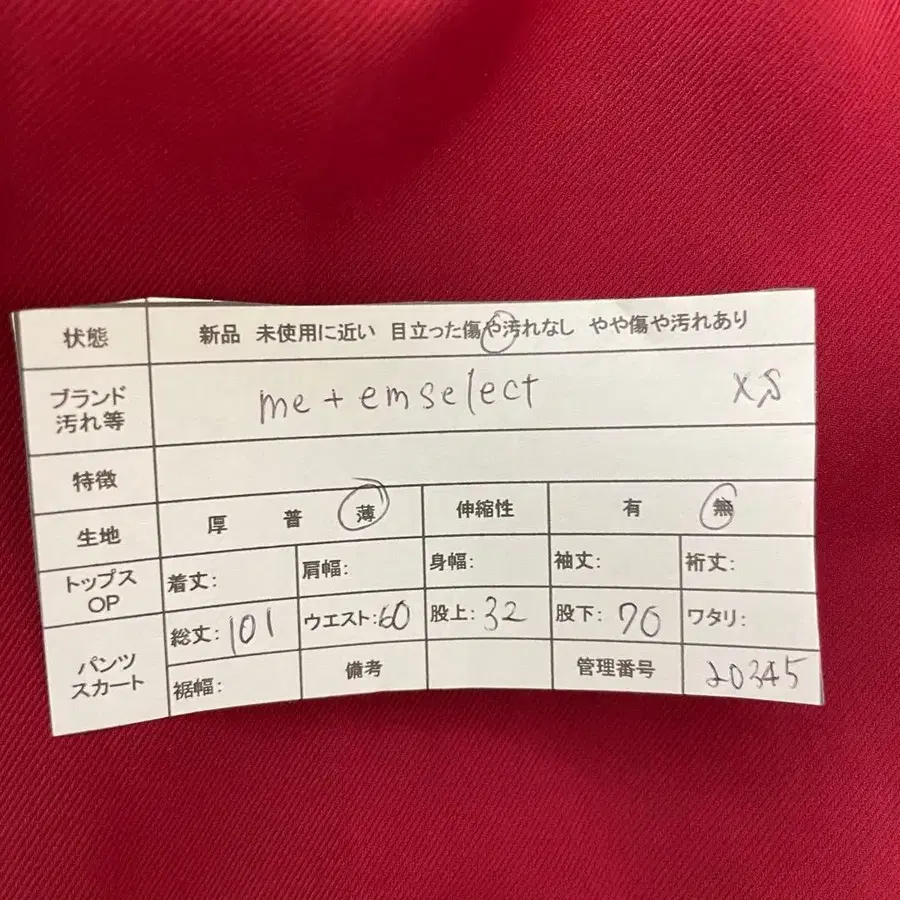 状態 新品 未使用に近い 目立った傷や汚れなし やや傷や汚れあり
ブランド
汚れ等 me + emselect XS
特徴
生地 厚 普 薄 伸縮性 有 無
トップス
OP 着丈: 肩幅: 身幅: 袖丈: 裄丈:
パンツ
スカート 総丈:101 ウエスト:60 股上:32 股下:70 ワタリ:
裾幅: 備考 管理番号 20345